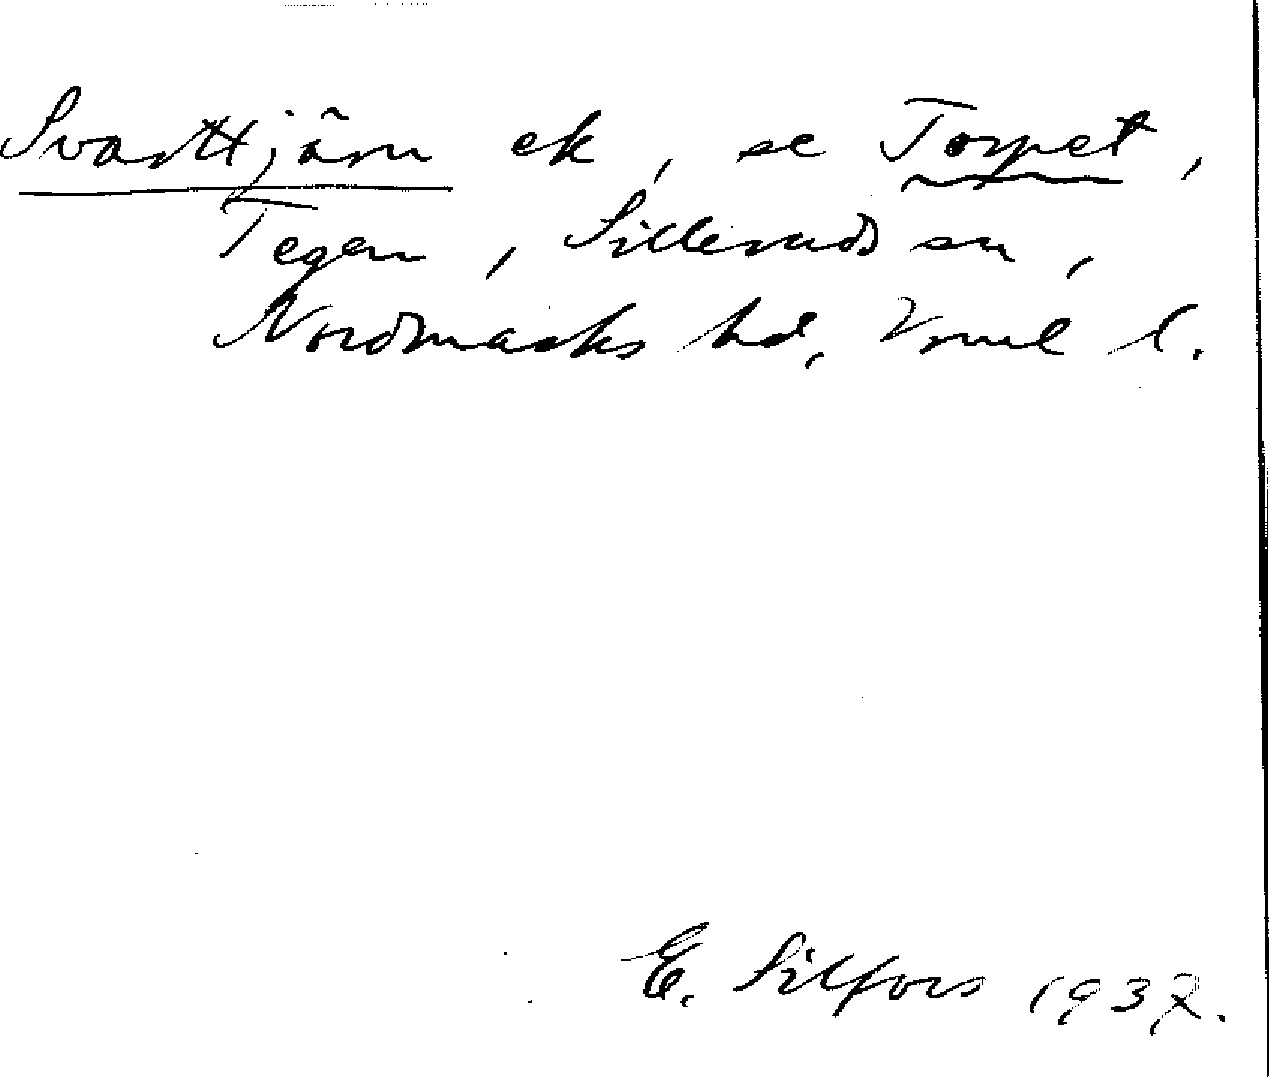 Svarttjärn ek, se Torpet,
Tegen, Silleruds sn,
Nordmarks hd, Vrml l.
E. Silfors 1937.